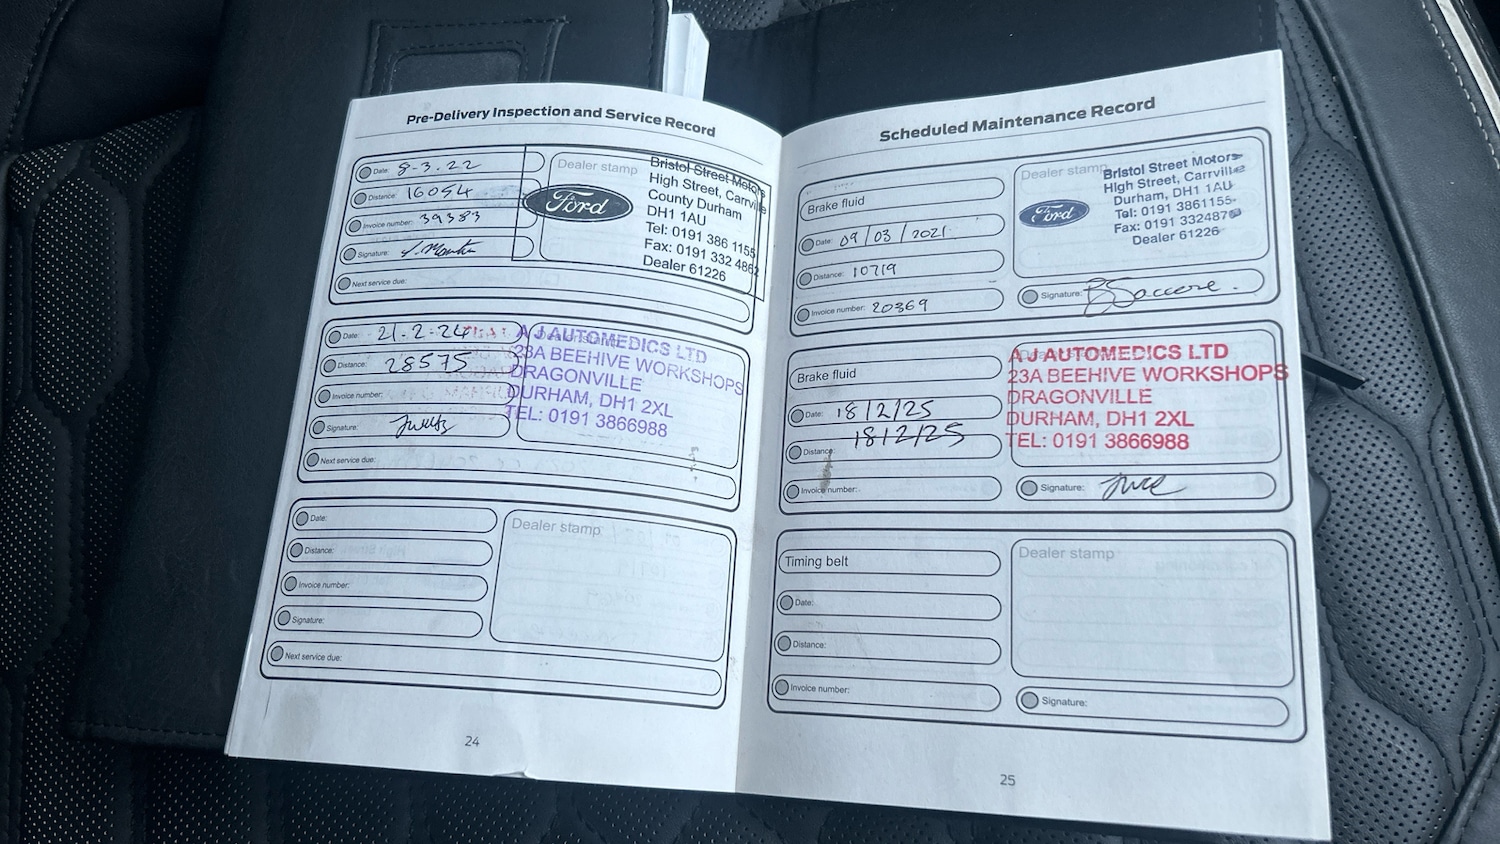 Pre-Delivery Inspection and Service Record
Date: 8-3.22
Distance: 16054
Invoice number: 39383
Signature:
Next service due:
Dealer stamp
Ford
Bristol Street Motors
High Street, Carrville
County Durham
DH1 1AU
Tel: 0191 386 1155
Fax: 0191 332 4862
Dealer 61226
Date: 21.2.24
Distance: 28575
Invoice number:
Signature:
Next service due:
Dealer stamp
A J AUTOMEDICS LTD
23A BEEHIVE WORKSHOPS
DRAGONVILLE
DURHAM, DH1 2XL
TEL: 0191 3866988
Date:
Distance:
Invoice number:
Signature:
Next service due:
Dealer stamp
24
Scheduled Maintenance Record
Brake fluid
Date: 09/03/2021
Distance: 10719
Invoice number: 20369
Dealer stamp
Ford
Bristol Street Motors
High Street, Carrville
Durham, DH1 1AU
Tel: 0191 3861155
Fax: 0191 332487
Dealer 61226
Signature:
Brake fluid
Date: 18/2/25
Distance: 18/2/25
Invoice number:
A J AUTOMEDICS LTD
23A BEEHIVE WORKSHOPS
DRAGONVILLE
DURHAM, DH1 2XL
TEL: 0191 3866988
Signature:
Timing belt
Date:
Distance:
Invoice number:
Dealer stamp
Signature:
25